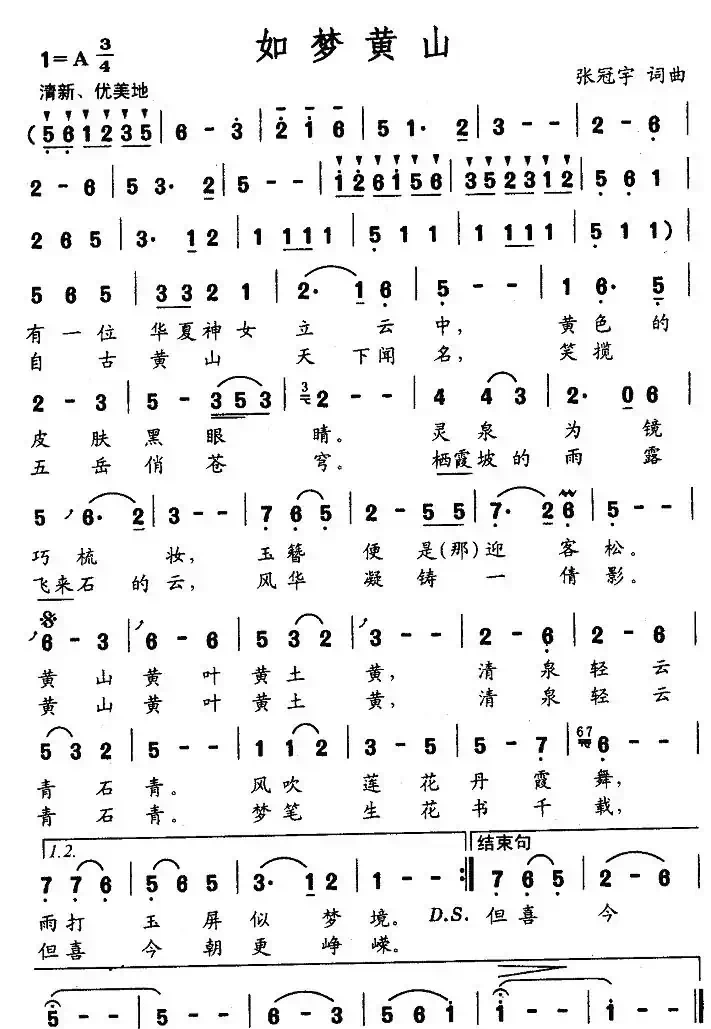 如梦黄山
1=A 3/4
张冠宇 词曲
清新、优美地
(5 6 1 2 3 5 | 6 - 3 | 2 1 6 | 5 1· 2 | 3 - - | 2 - 6 |
2 - 6 | 5 3· 2 | 5 - - | 1 2 6 1 5 6 | 3 5 2 3 1 2 | 5 6 1 |
2 6 5 | 3· 1 2 | 1 1 1 1 | 5 1 1 | 1 1 1 1 | 5 1 1) |
5 6 5 | 3 3 2 1 | 2· 1 6 | 5 - - | 1 6· 5 |
有一位 华夏神女 立 云 中, 黄色的
自 古 黄 山 天 下闻 名, 笑揽
2 - 3 | 5 - 3 5 3 | 3 2 - - | 4 4 3 | 2· 0 6 |
皮 肤 黑 眼 睛。 灵 泉 为 镜
五 岳 俏 苍 穹。 栖霞坡的 雨 露
5 6· 2 | 3 - - | 7 6 5 | 2 - 5 5 | 7· 2 6 | 5 - - |
巧 梳 妆, 玉簪 便 是(那)迎 客 松。
飞来石 的 云, 风华 凝 铸 一 倩 影。
6 - 3 | 6 - 6 | 5 3 2 | 3 - - | 2 - 6 | 2 5 6 |
黄 山 黄 叶 黄 土 黄, 清 泉 轻 云
黄 山 黄 叶 黄 土 黄, 清 泉 轻 云
5 3 2 | 5 - - | 1 1 2 | 3 - 5 | 5 - 7 | 67 6 - - |
青 石 青。 风吹 莲 花 丹 霞 舞,
青 石 青。 梦笔 生 花 书 千 载,
1.2. 结束句
7 7 6 | 5 6 5 | 3· 1 2 | 1 - - :‖ 7 6 5 | 2 - 6 |
雨打 玉 屏 似 梦 境。 D.S. 但喜 今
但喜 今 朝 更 峥 嵘。
5 - - | 5 - - | 2 2 2 | 6 - 3 | 5 6 1 | 1 - - | 1 - - ‖